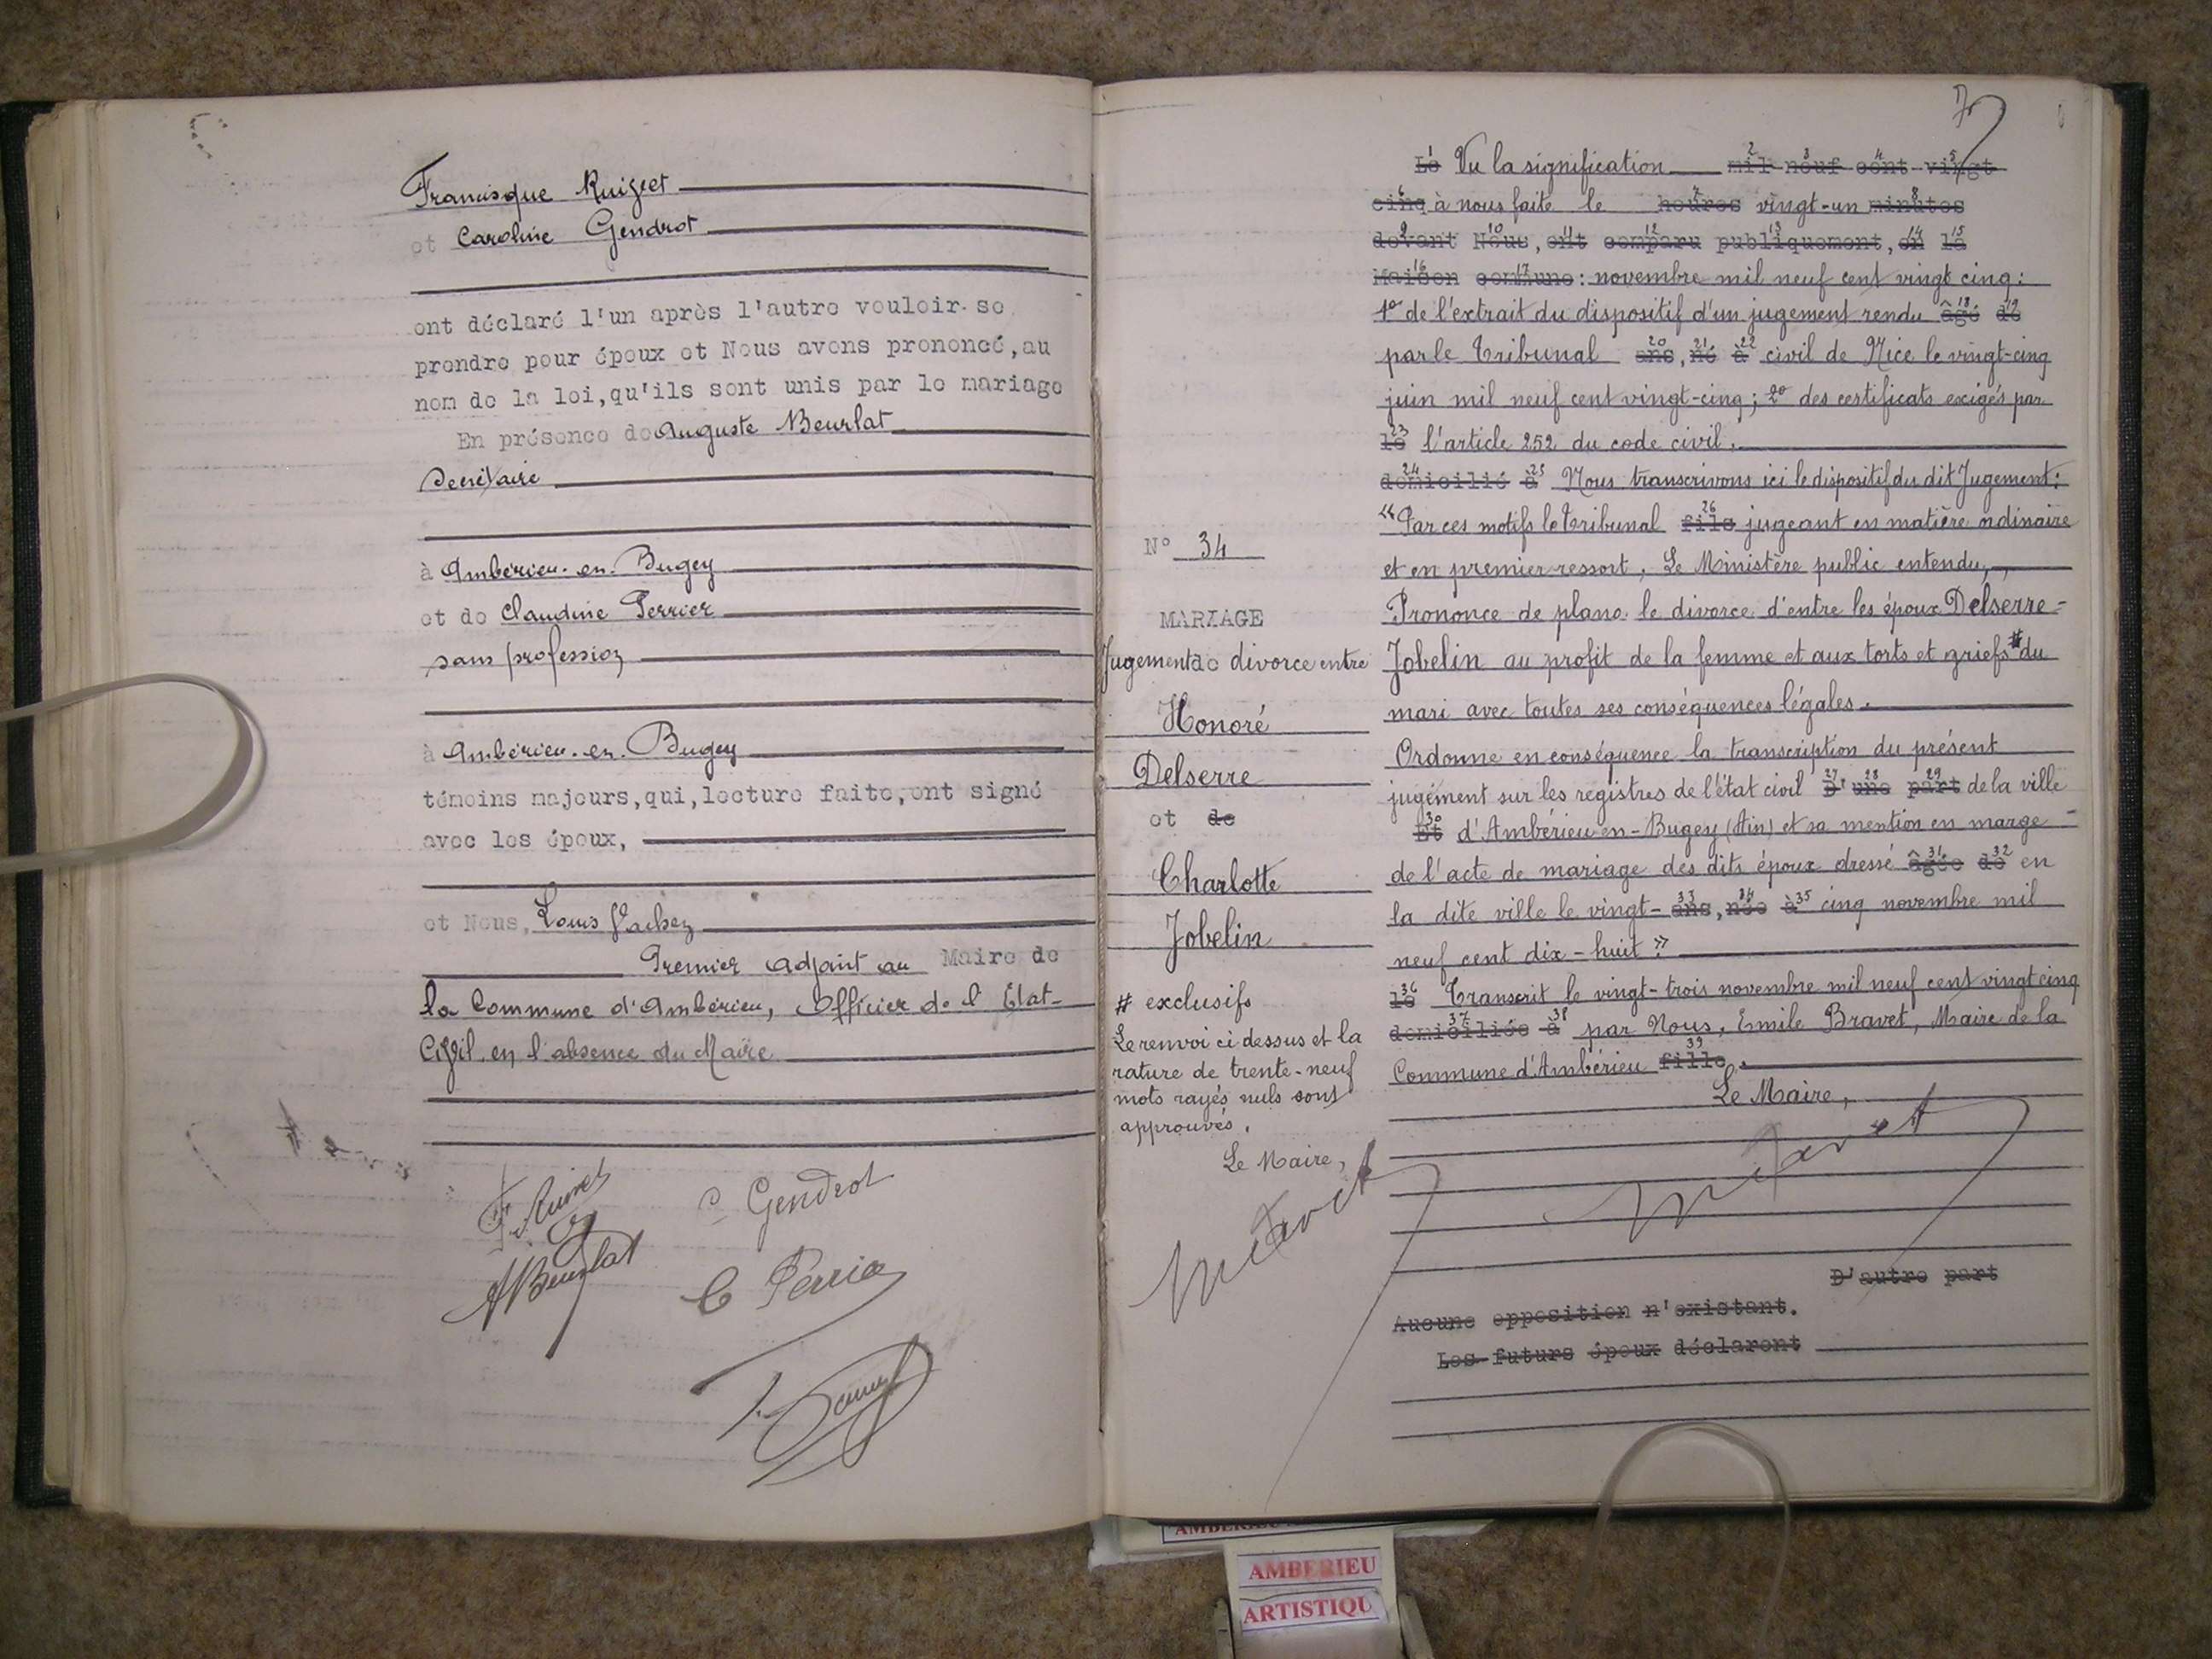 Francisque Ruizet
et Caroline Gendrot
ont déclaré l'un après l'autre vouloir se
prendre pour époux et Nous avons prononcé, au
nom de la loi, qu'ils sont unis par le mariage
En présence de Auguste Beurlat
Secrétaire
à Ambérieu-en-Bugey
et de Claudine Perrier
sans profession
à Ambérieu-en-Bugey
témoins majeurs, qui, lecture faite, ont signé
avec les époux,
et Nous, Louis
Premier adjoint au Maire de
la Commune d'Ambérieu, Officier de l'Etat-
Civil en l'absence du Maire
C Gendrot
ABeurlat
C Perrier
N° 34
MARIAGE
Jugement de divorce entre
Honoré
Delserre
et de
Charlotte
Jobelin
# exclusifs
Le renvoi ci dessus et la
rature de trente-neuf
mots rayés nuls sont
approuvés.
Le Maire,
Le Vu la signification mil neuf cent vingt
cinq à nous faite le heures vingt-un minutes
devant Nous, ont comparu publiquement, en la
Maison commune: novembre mil neuf cent vingt cinq:
1° de l'extrait du dispositif d'un jugement rendu âgé de
par le Tribunal ans, né à civil de Nice le vingt-cinq
juin mil neuf cent vingt-cinq; 2° des certificats exigés par
le l'article 252 du code civil.
domicilié à Nous transcrivons ici le dispositif du dit Jugement:
"Par ces motifs le Tribunal fils jugeant en matière ordinaire
et en premier ressort, Le Ministère public entendu,
Prononce de plano le divorce d'entre les époux Delserre-
Jobelin au profit de la femme et aux torts et griefs # du
mari avec toutes ses conséquences légales.
Ordonne en conséquence la transcription du présent
jugement sur les registres de l'état civil D'une part de la ville
Et d'Ambérieu-en-Bugey (Ain) et sa mention en marge
de l'acte de mariage des dits époux dressé âgée de en
la dite ville le vingt- ans, née à cinq novembre mil
neuf cent dix-huit"
le Transcrit le vingt-trois novembre mil neuf cent vingt cinq
domiciliée à par Nous, Emile Bravet, Maire de la
Commune d'Ambérieu fille.
Le Maire,
D'autre part
Aucune opposition n'existant.
Les futurs époux déclarent
AMBERIEU
ARTISTIQU